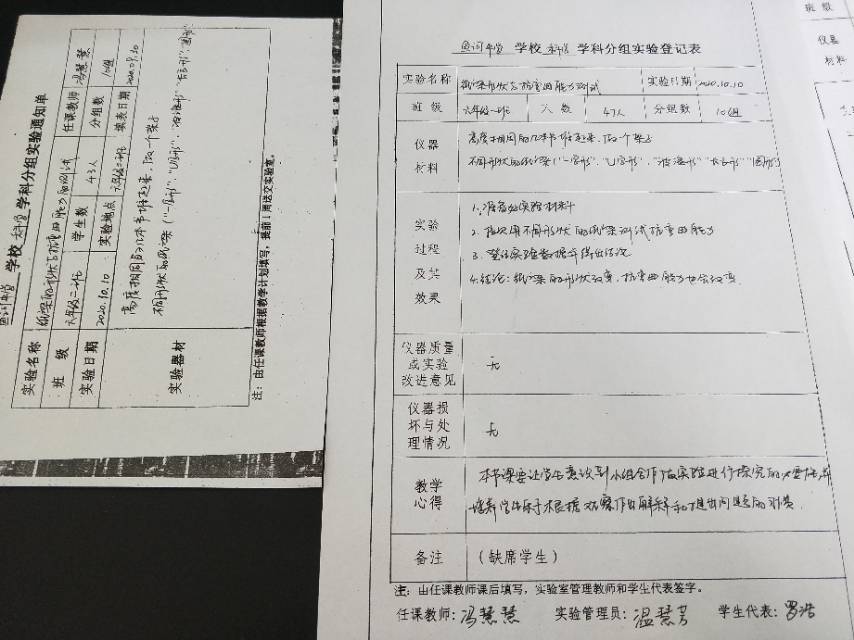 学校 科学 学科分组实验通知单
实验名称 纸梁的形状与抗弯曲能力的测试 任课教师 冯慧慧
班 级 六年级二班 学生数 43人 分组数 10组
实验日期 2020.10.10 实验地点 六年级二班 填表日期 2020.09.30
实验器材
高度相同的几本书堆起来,做一个架子
不同形状的纸梁("一字形"、"U字形"、
注:由任课教师根据教学计划填写,提前1周送交实验室。
学校 科学 学科分组实验登记表
实验名称 纸梁形状与抗弯曲能力测试 实验日期 2020.10.10
班 级 六年级一班 人 数 47人 分组数 10组
仪器
材料
高度相同的几本书堆起来,做一个架子
不同形状的纸梁("一字形"、U字形"、
实验
过程
及其
效果
1.准备好实验材料
2.依次用不同形状的纸梁测试抗弯曲能力
3.整理实验数据并得出结论
4.结论:纸梁的形状改变,抗弯曲能力也会改变.
仪器质量
或实验
改进意见
无
仪器损
坏与处
理情况
无
教学
心得
本节课要让学生意识到小组合作做实验进行探究的必要性,并
培养学生乐于根据观察作出解释和提出问题的习惯.
备注 (缺席学生)
注:由任课教师课后填写,实验室管理教师和学生代表签字。
任课教师:冯慧慧 实验管理员:温慧芳 学生代表:罗浩
班 级
仪器
材料